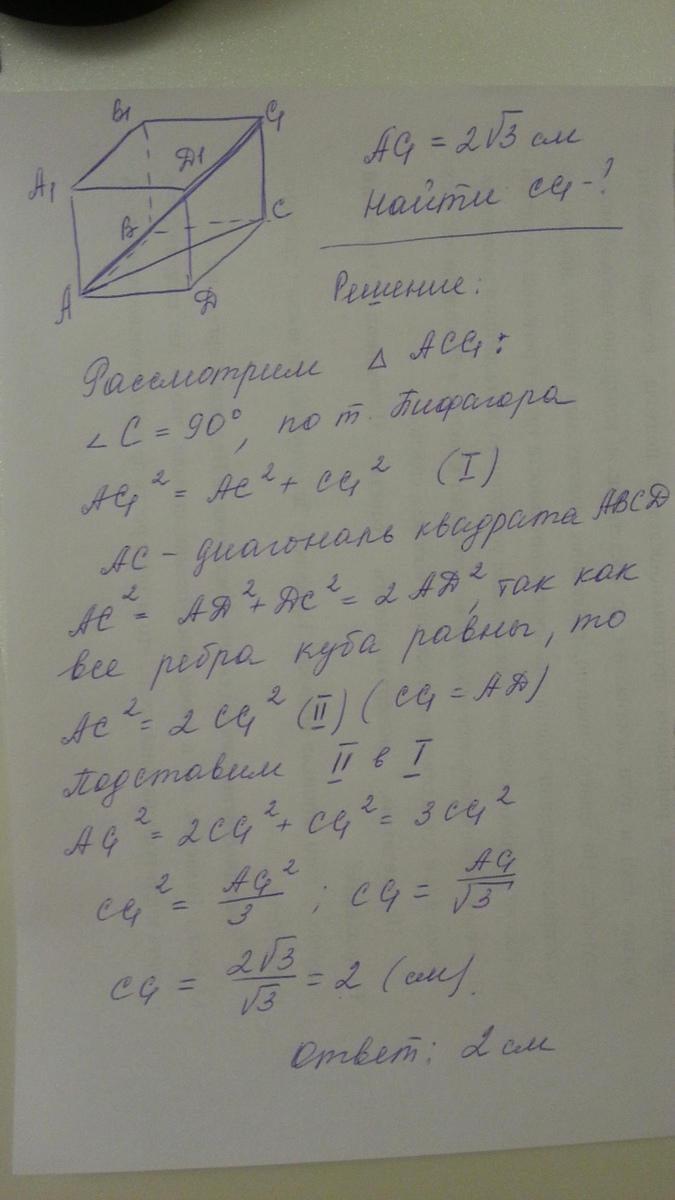 B1
C1
A1
D1
B
C
A
D
AC1 = 2√3 см
Найти CC1 - ?
Решение:
Рассмотрим △ ACC1:
∠C = 90°, по т. Пифагора
AC1² = AC² + CC1² (I)
AC - диагональ квадрата ABCD
AC² = AD² + DC² = 2AD², так как
все ребра куба равны, то
AC² = 2CC1² (II) (CC1 = AD)
Подставим II в I
AC1² = 2CC1² + CC1² = 3CC1²
CC1² = AC1²/3 ; CC1 = AC1/√3
CC1 = 2√3/√3 = 2 (см).
Ответ: 2 см